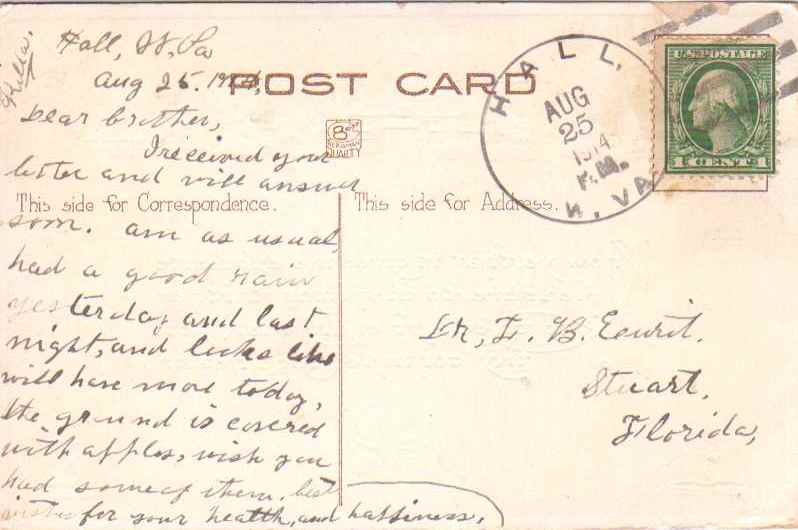 Hall, W. Va
Aug 25. 1914,
POST CARD
Dear brother,
I received your
letter and will answer
This side for Correspondence.
soon. am as usual,
had a good rain
yesterday and last
night, and looks like
will have more today,
the ground is covered
with apples, wish you
had some of them, best
wishes for your health, and happiness.
8
QUALITY
HALL.
AUG
25
1914
P.M.
W. VA
U.S. POSTAGE
1 CENTS 1
This side for Address.
Dr, L. B. 
Stuart,
Florida,